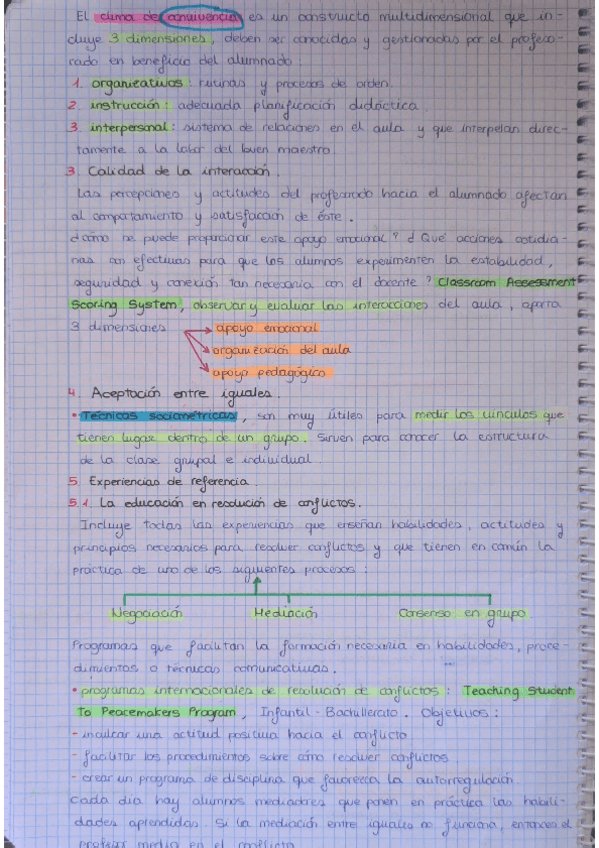 El clima de convivencia es un constructo multidimensional que in-
cluye 3 dimensiones, deben ser conocidas y gestionadas por el profeso-
rado en beneficio del alumnado:
1. organizativos: rutinas y procesos de orden.
2. instrucción: adecuada planificación didáctica.
3. interpersonal: sistema de relaciones en el aula y que interpelan direc-
tamente a la labor del buen maestro.
3. Calidad de la interacción.
Las percepciones y actitudes del profesorado hacia el alumnado afectan
al comportamiento y satisfacción de éste.
¿Cómo se puede proporcionar este apoyo emocional? ¿Qué acciones cotidia-
nas son efectivas para que los alumnos experimenten la estabilidad,
seguridad y conexión tan necesaria con el docente? Classroom Assessment
Scoring System, observar y evaluar las interacciones del aula, aporta
3 dimensiones
apoyo emocional
organización del aula
apoyo pedagógico
4. Aceptación entre iguales.
• Técnicas sociométricas, son muy útiles para medir los vínculos que
tienen lugar dentro de un grupo. Sirven para conocer la estructura
de la clase grupal e individual
5. Experiencias de referencia.
5.1. La educación en resolución de conflictos.
Incluye todas las experiencias que enseñan habilidades, actitudes y
principios necesarios para resolver conflictos y que tienen en común la
práctica de uno de los siguientes procesos:
Negociación Mediación Consenso en grupo
Programas que facilitan la formación necesaria en habilidades, proce-
dimientos o técnicas comunicativas.
• programas internacionales de resolución de conflictos: Teaching Student
To Peacemakers Program, Infantil - Bachillerato. Objetivos:
- inculcar una actitud positiva hacia el conflicto
- facilitar los procedimientos sobre cómo resolver conflictos
- crear un programa de disciplina que favorezca la autorregulación.
Cada día hay alumnos mediadores que ponen en práctica las habili-
dades aprendidas. Si la mediación entre iguales no funciona, entonces el
profesor media en el conflicto